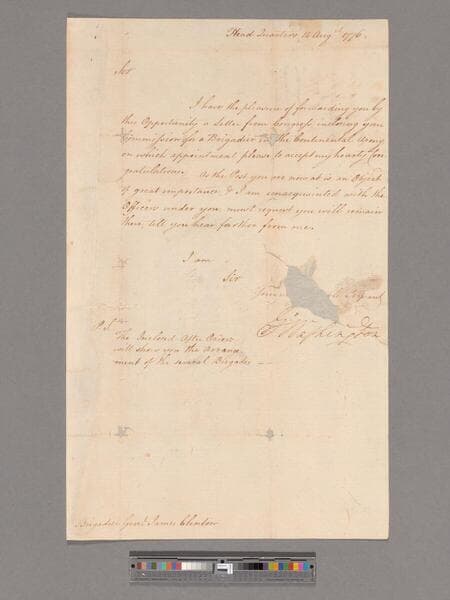 Head Quarters 14 Augt 1776.
Sir
I have the pleasure of forwarding you by
this Opportunity a Letter from Congress inclosing your
Commission for a Brigadier in the Continental Army
on which appointment please to accept my hearty Con
gratulations. As the Post you are now at is an Object
of great importance & I am unacquainted with the
Officers under you, must request you will remain
there, till you hear further from me.
I am
Sir
Servant
Go Washington
P.S.
The Inclosed After Orders
will shew you the Arrange
ment of the several Brigades
Brigadier Genl James Clinton